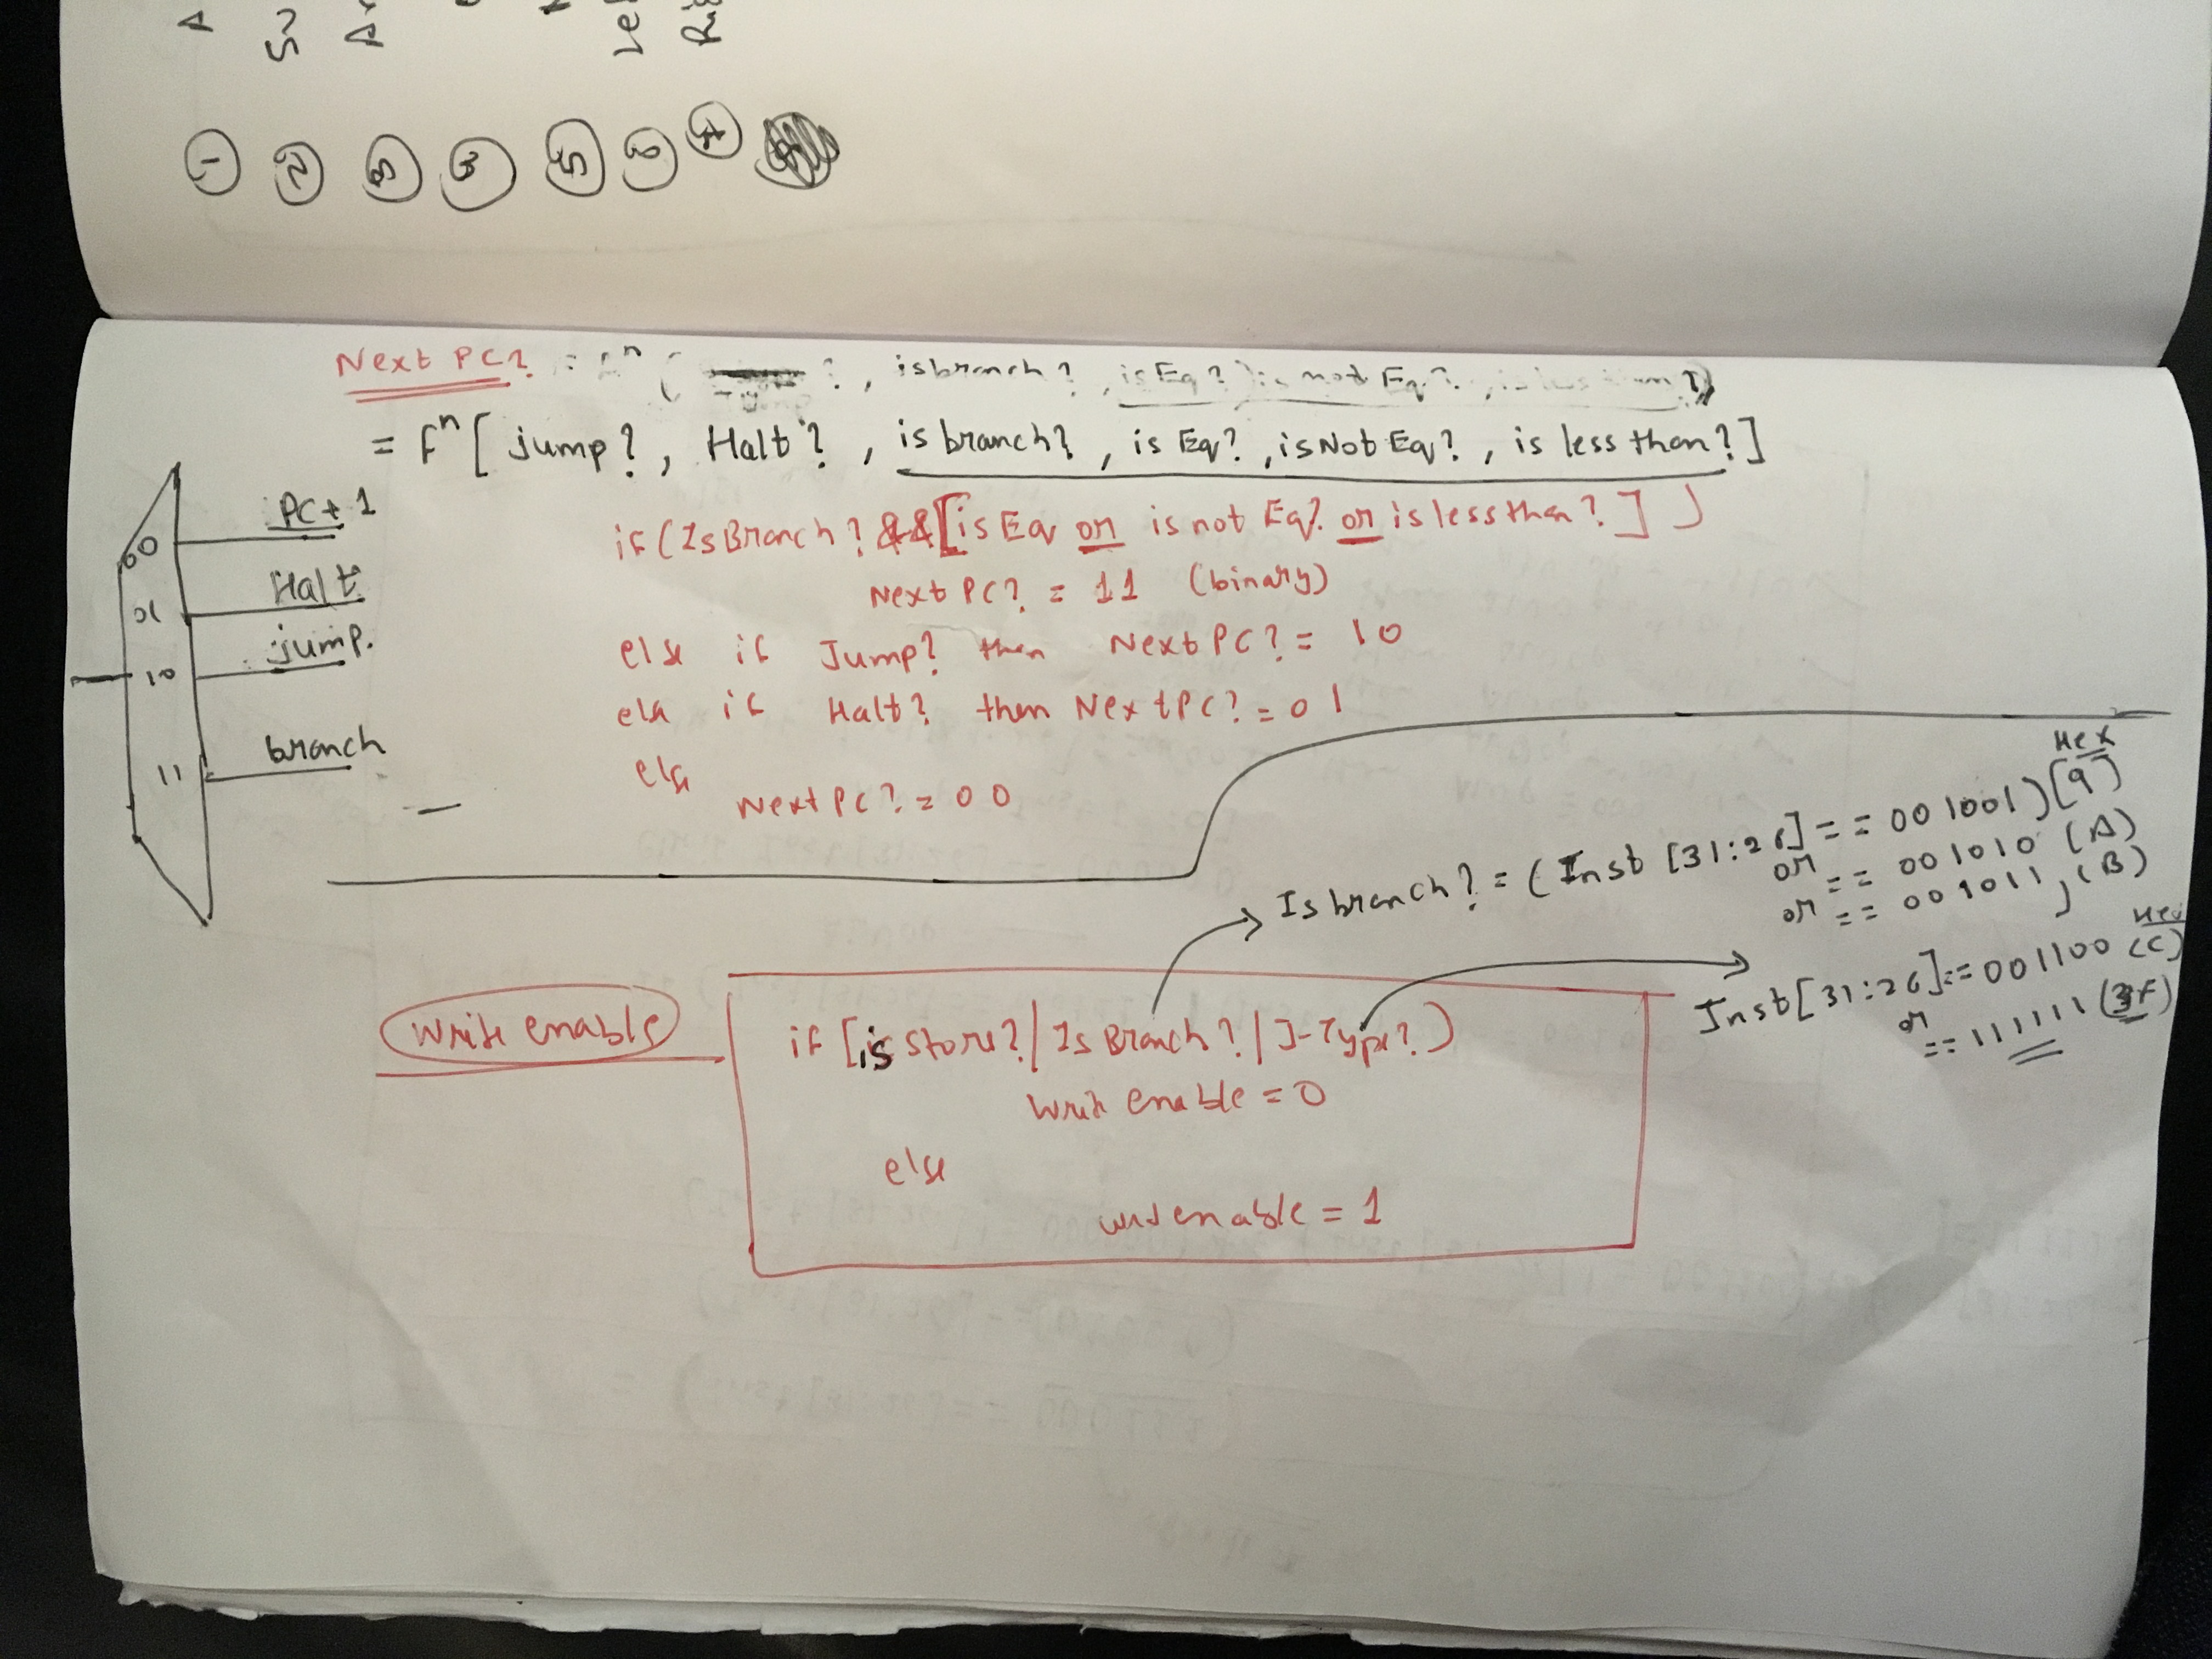 A
Su
Ar
Le
Rig
1
2
3
3
5
6
7
Next PC? = fn ( ?, is branch?, is Eq? is not Eq?, is less than?)
= fn [ jump?, Halt?, is branch?, is Eq?, is Not Eq?, is less than? ]
PC+1
00
Halt
01
jump.
10
branch
11
if (Is Branch? && [is Eq or is not Eq? or is less than? ] )
Next PC? = 11 (binary)
else if Jump? then Next PC? = 10
else if Halt? then Next PC? = 01
else
Next PC? = 00
Is branch? = (Inst [31:26] == 001001) [9] Hex
or == 001010 (A)
or == 001011) (B)
Inst [31:26] == 001100 (C) Hex
or == 111111 (3F)
Write enable
if [is Store? | Is Branch? | J-Type? )
Write enable = 0
else
write enable = 1